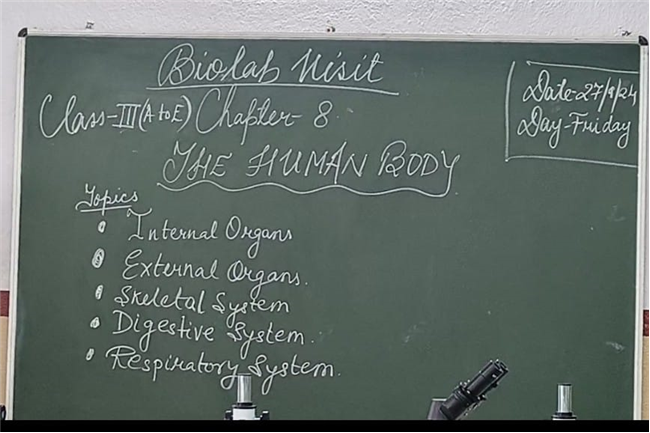 Biolab Visit
Date-27/9/24
Day-Friday
Class-III(A to E) Chapter-8
THE HUMAN BODY
Topics
Internal Organs
External Organs.
Skeletal System
Digestive System.
Respiratory System.